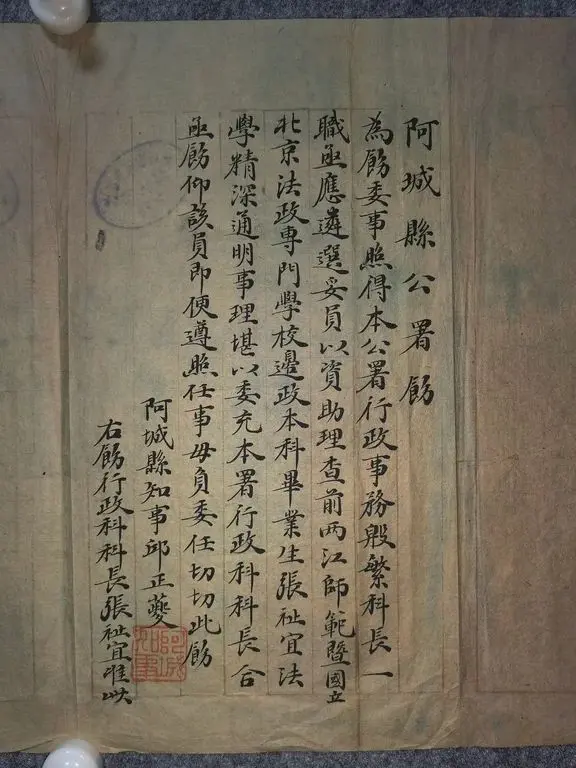 阿城縣公署飭
為飭委事照得本公署行政事務殷繁科長一
職亟應遴選妥員以資助理查前两江師範暨國立
北京法政專門學校邊政本科畢業生張祉宜法
學精深通明事理堪以委充本署行政科科長合
亟飭仰該員即便遵照任事毋負委任切切此飭
阿城縣知事邱正夔
右飭行政科科長張祉宜准此